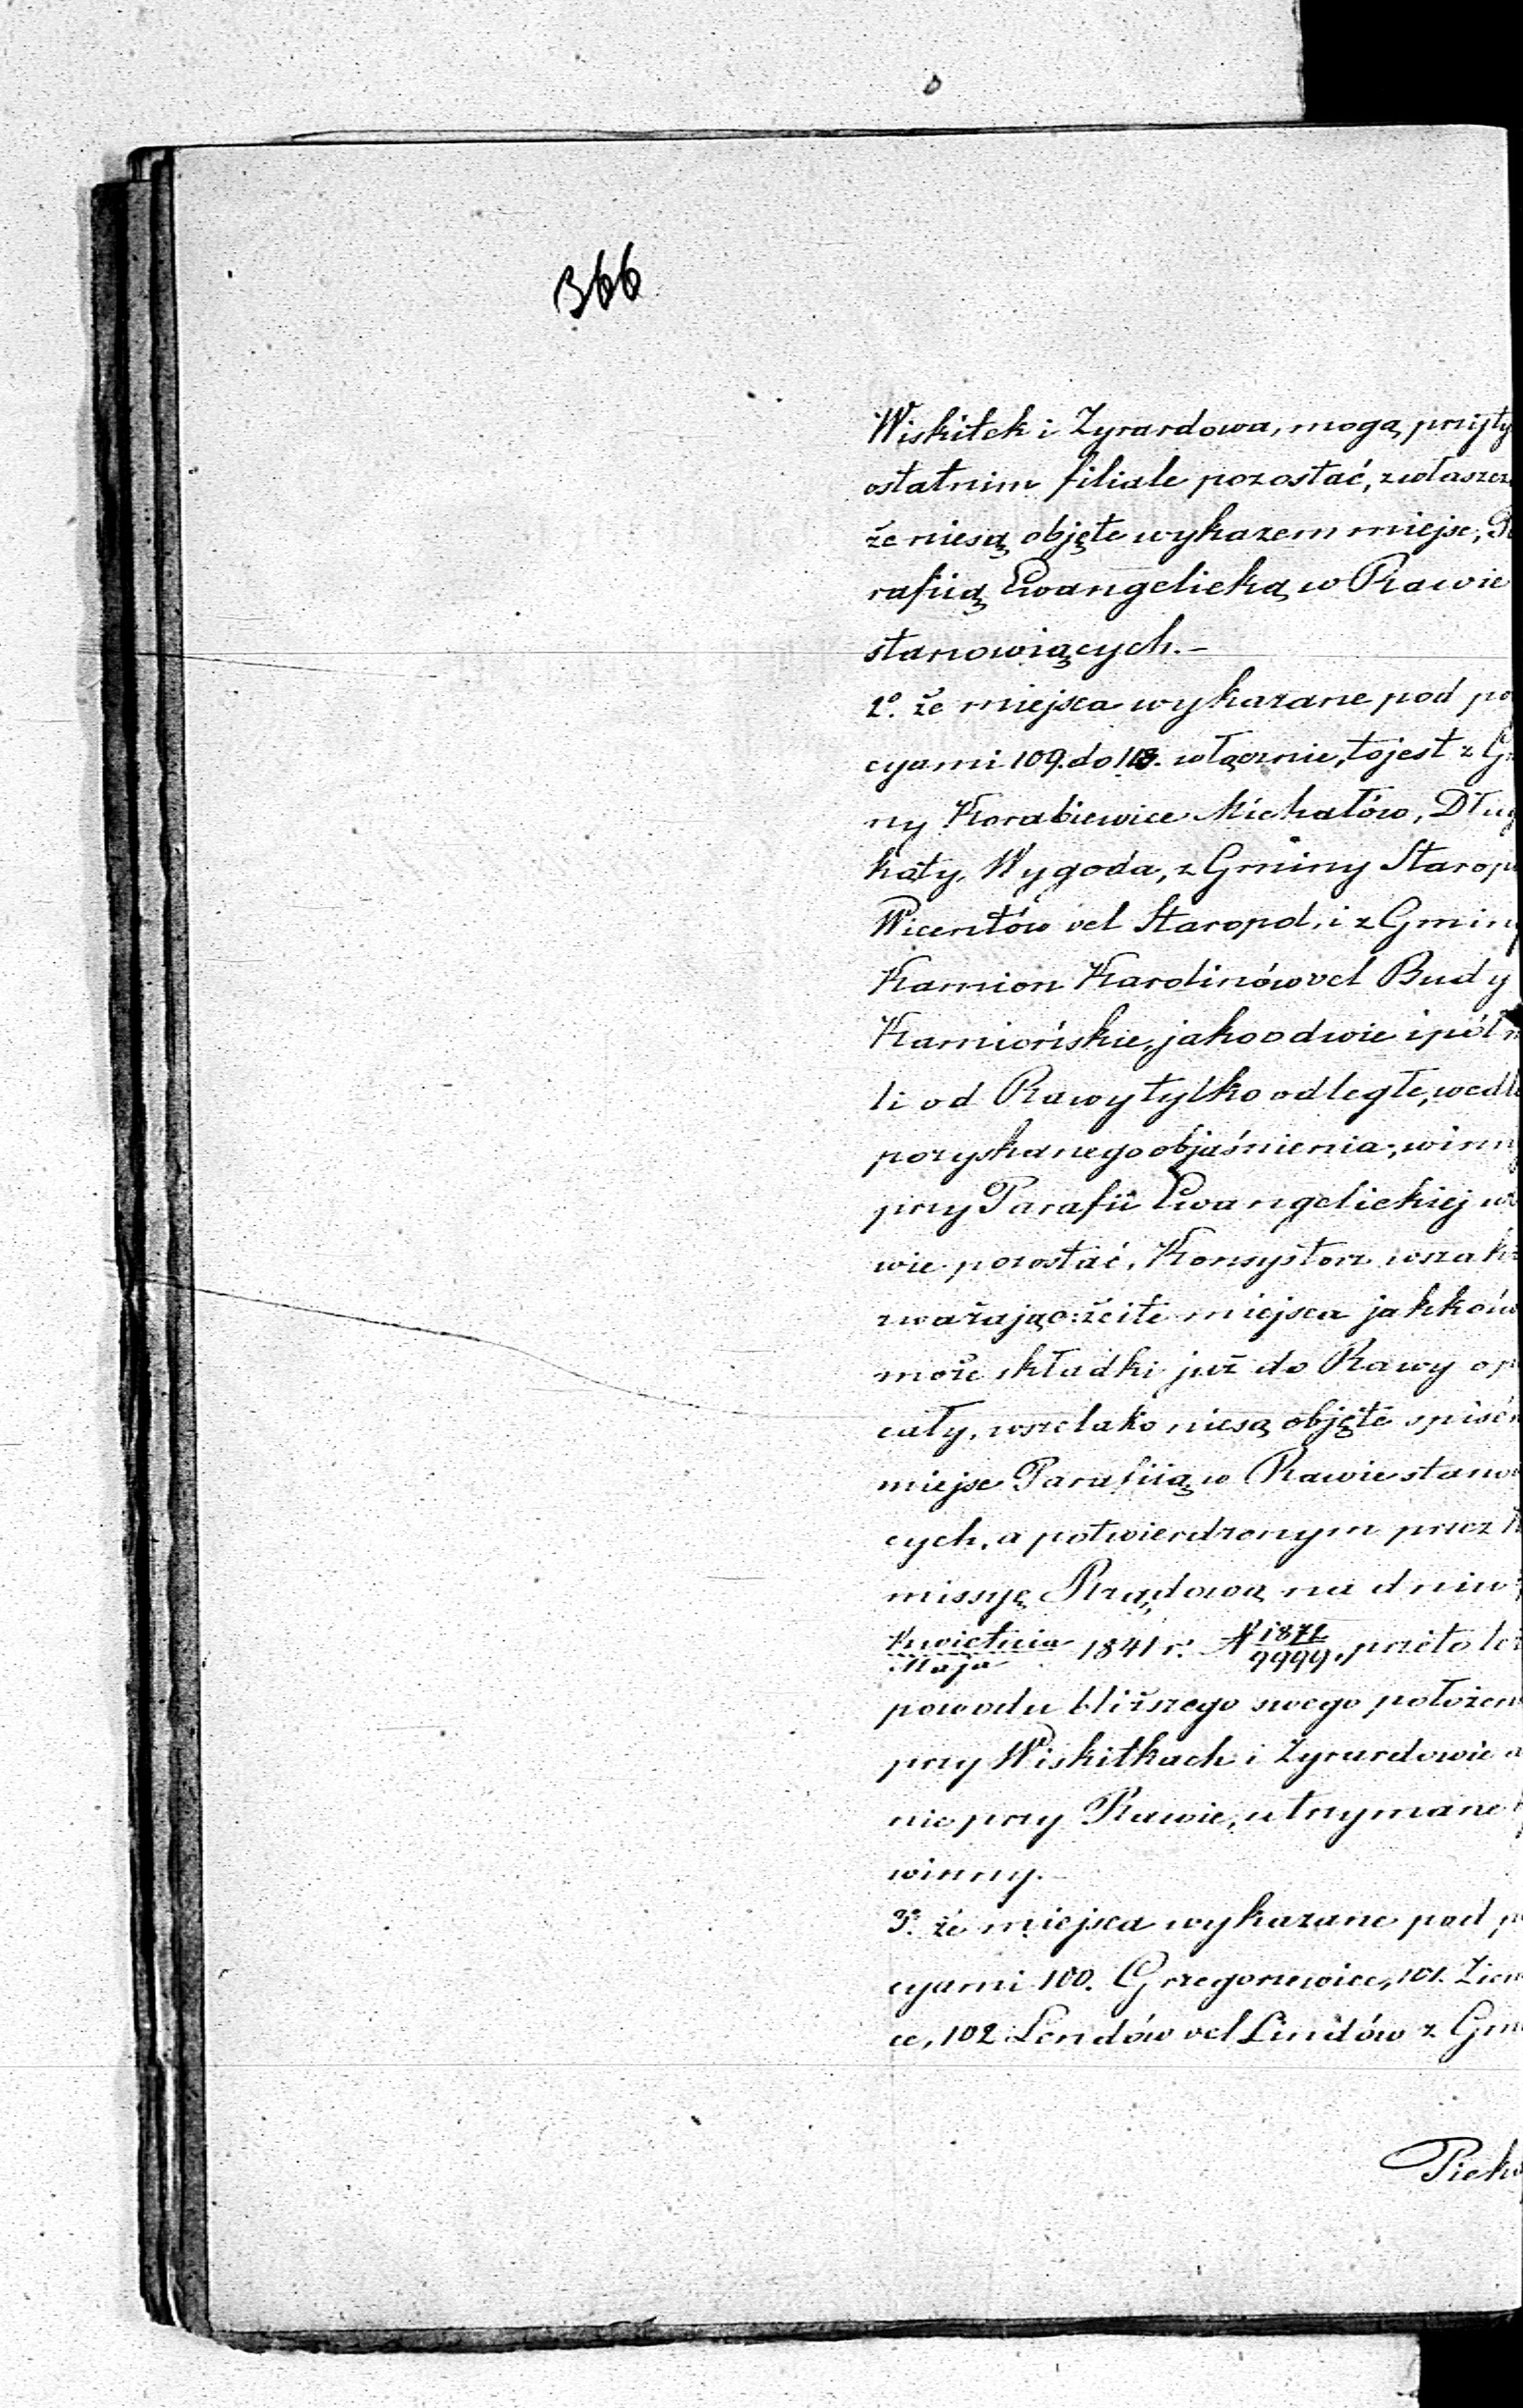 366
Wiskitek i Zyrardowa, mogą przyty
ostatnim filiale pozostać, zwłaszcz
że niesą objęte wykazem miejsc, Pa
rafiią Ewangelicką w Rawie
stanowiących.—
2º. że miejsca wykazane pod po
cyami 109. do 113. włącznie, tojest z G
ny Korabiewice Michałów, Dług
kąty, Wygoda, z Gminy Starop
Wicentów vel Staropol, i z Gminy
Kamion Karolinów vel Budy
Kamiońskie, jako o dwie i pół m
li od Rawy tylko odległe, wedle
pozyskanego objaśnienia, winny
przy Parafii Ewangelickiej w
wie pozostać, Konsystorz wszakż
zważając: że i te miejsca jakków
może składki już do Rawy op
cały, wszelako niesą objęte spisem
miejsc Parafiią w Rawie stanow
cych, a potwierdzonym przez K
missyę Rządową na dniu
Kwietnia/Maja 1841 r. N 1871/9999, przeto le
powodu bliższego swego położen
przy Wiskitkach i Zyrardowie a
nie przy Rawie, utrzymane
winny.—
3º. że miejsca wykazane pod p
cyami 100. Grzegorzewice, 101. Ziem
ce, 102 Lendów vel Lindów z Gm
Piek